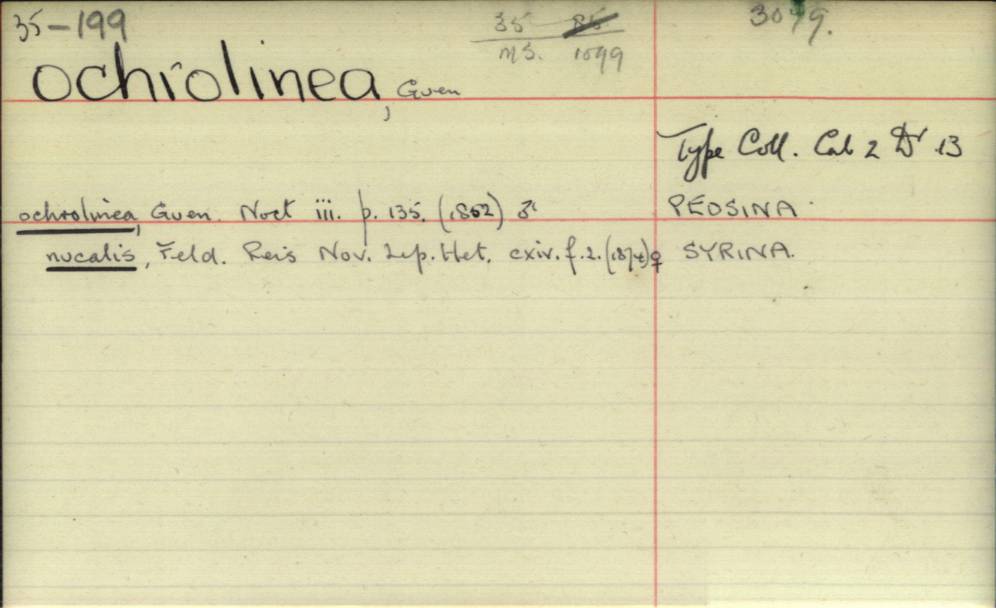 35-199
35 85
MS. 1099
3099.
ochrolinea, Guen
Type Coll. Cab 2 Dr 13
ochrolinea, Guen. Noct iii. p. 135. (1852) ♂ PEOSINA.
nucalis, Feld. Reis Nov. Lep. Het. cxiv. f. 2. (1874) ♀ SYRINA.